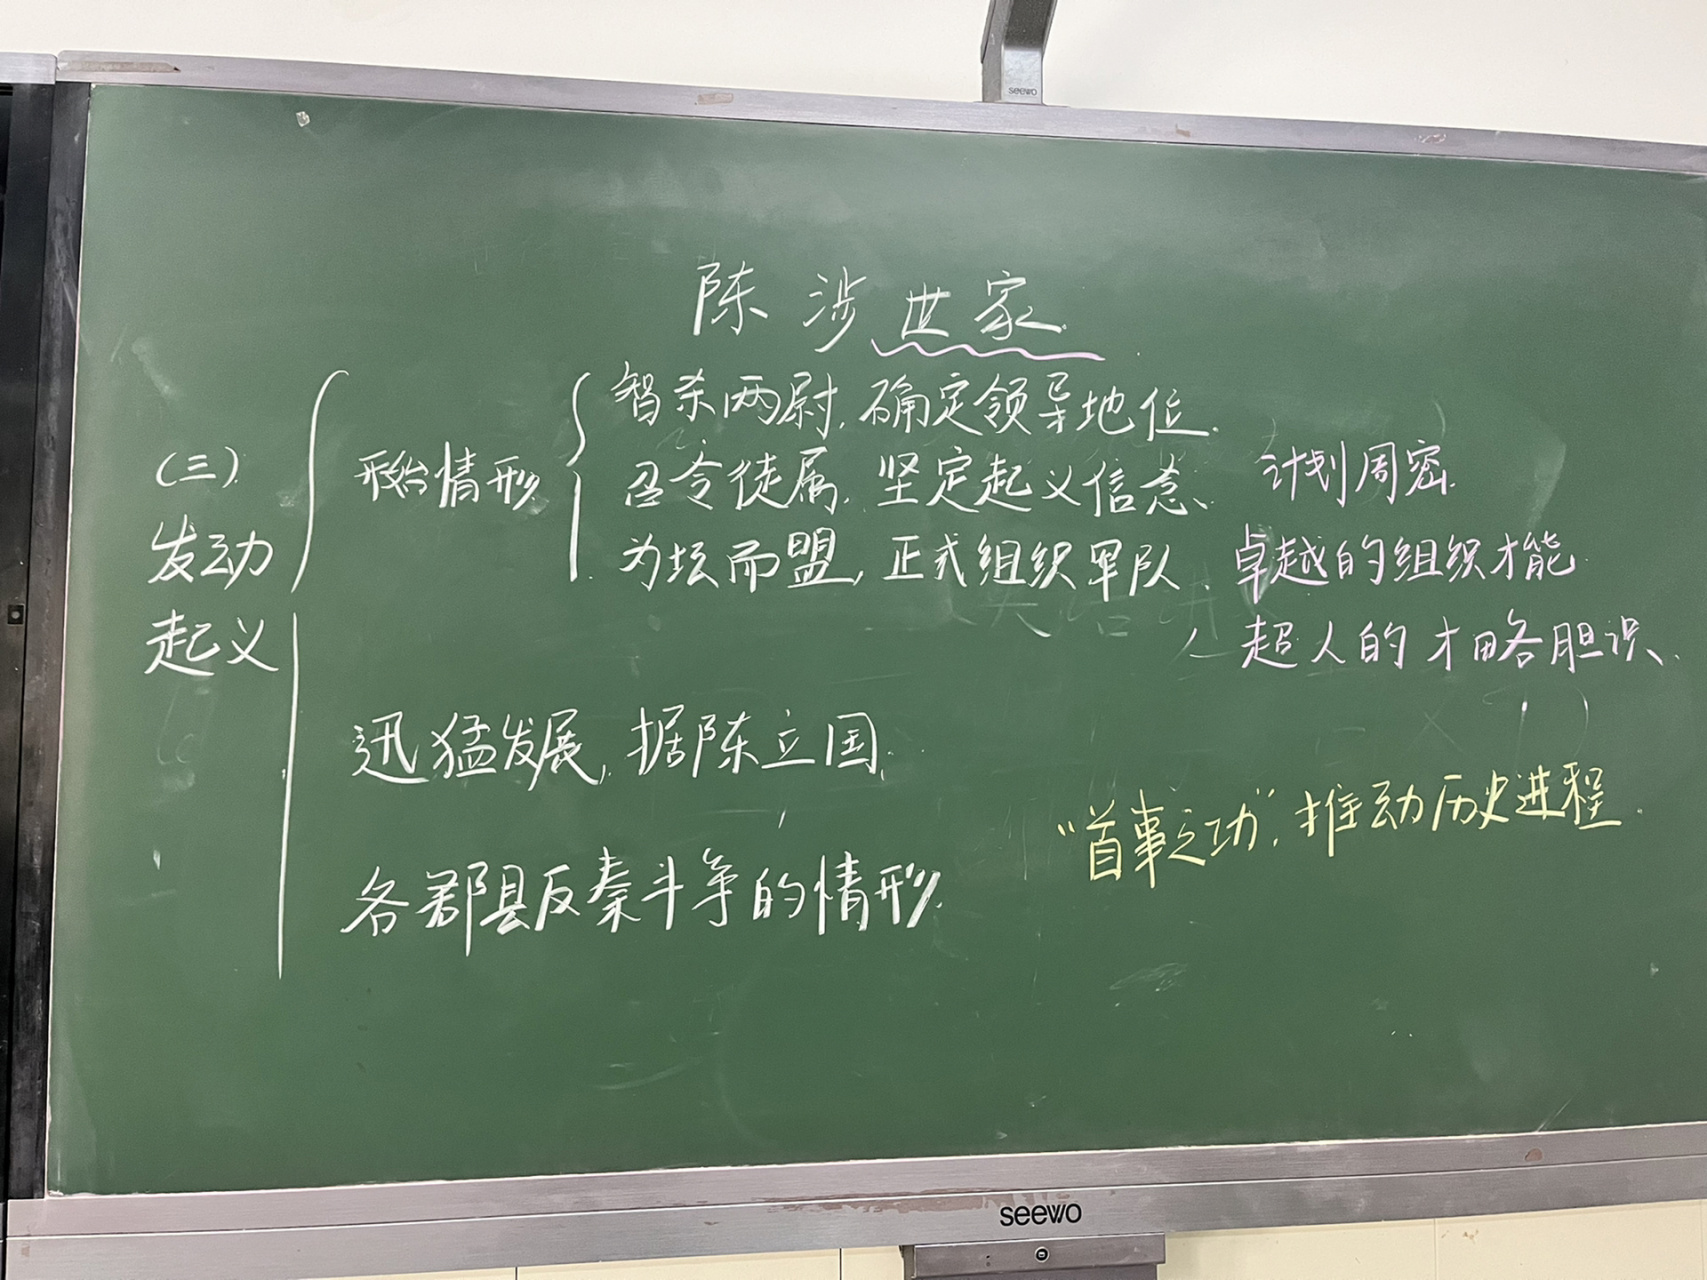 seewo
陈涉世家
智杀两尉,确定领导地位.
(三). 形始情形 召令徒属,坚定起义信念、 计划周密.
发动 为坛而盟,正式组织军队. 卓越的组织才能.
起义 超人的才略胆识、
迅猛发展,据陈立国.
“首事之功”,推动历史进程.
各郡县反秦斗争的情形.
seewo